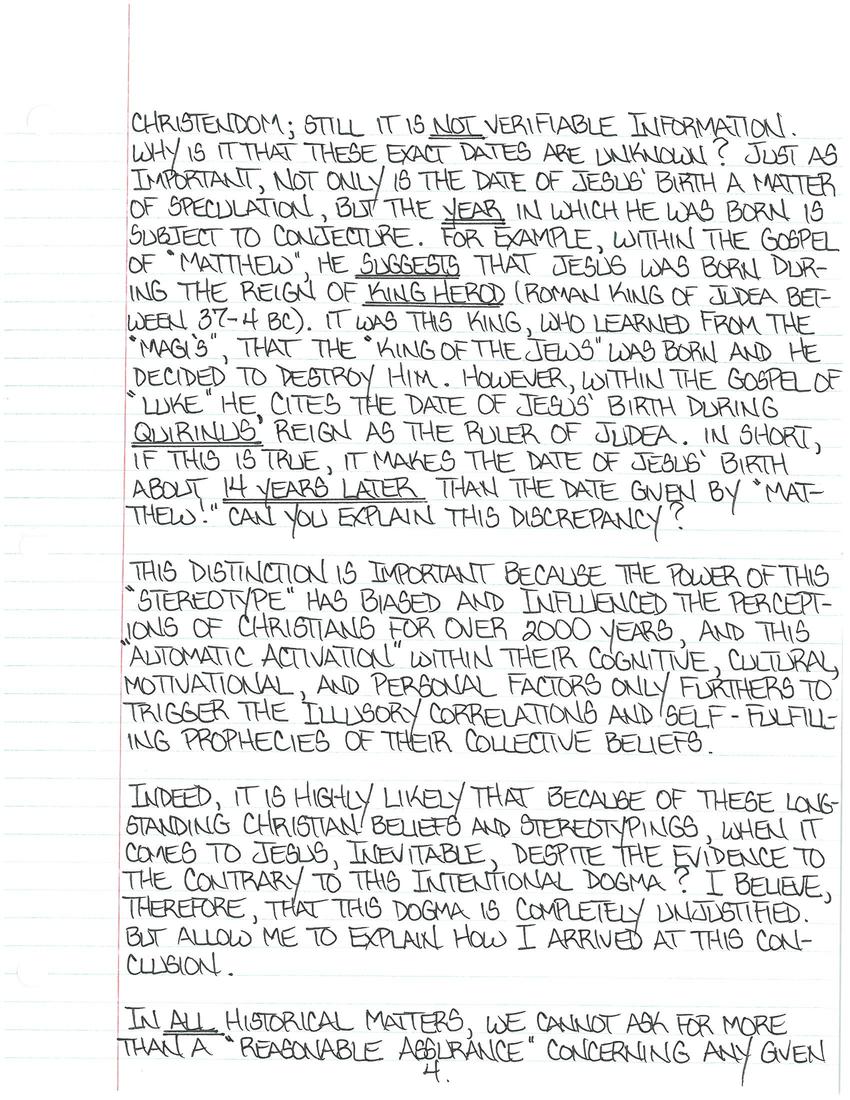 CHRISTENDOM; STILL IT IS NOT VERIFIABLE INFORMATION.
WHY IS IT THAT THESE EXACT DATES ARE UNKNOWN? JUST AS
IMPORTANT, NOT ONLY IS THE DATE OF JESUS' BIRTH A MATTER
OF SPECULATION, BUT THE YEAR IN WHICH HE WAS BORN IS
SUBJECT TO CONJECTURE. FOR EXAMPLE, WITHIN THE GOSPEL
OF "MATTHEW", HE SUGGESTS THAT JESUS WAS BORN DUR-
ING THE REIGN OF KING HEROD (ROMAN KING OF JUDEA BET-
WEEN 37-4 BC). IT WAS THIS KING, WHO LEARNED FROM THE
"MAGI'S", THAT THE "KING OF THE JEWS" WAS BORN AND HE
DECIDED TO DESTROY HIM. HOWEVER, WITHIN THE GOSPEL OF
"LUKE" HE, CITES THE DATE OF JESUS' BIRTH DURING
QUIRINUS' REIGN AS THE RULER OF JUDEA. IN SHORT,
IF THIS IS TRUE, IT MAKES THE DATE OF JESUS' BIRTH
ABOUT 14 YEARS LATER THAN THE DATE GIVEN BY "MAT-
THEW." CAN YOU EXPLAIN THIS DISCREPANCY?
THIS DISTINCTION IS IMPORTANT BECAUSE THE POWER OF THIS
"STEREOTYPE" HAS BIASED AND INFLUENCED THE PERCEPT-
IONS OF CHRISTIANS FOR OVER 2000 YEARS, AND THIS
"AUTOMATIC ACTIVATION" WITHIN THEIR COGNITIVE, CULTURAL,
MOTIVATIONAL, AND PERSONAL FACTORS ONLY FURTHERS TO
TRIGGER THE ILLUSORY CORRELATIONS AND SELF-FULFILL-
ING PROPHECIES OF THEIR COLLECTIVE BELIEFS.
INDEED, IT IS HIGHLY LIKELY THAT BECAUSE OF THESE LONG-
STANDING CHRISTIAN BELIEFS AND STEREOTYPINGS, WHEN IT
COMES TO JESUS, INEVITABLE, DESPITE THE EVIDENCE TO
THE CONTRARY TO THIS INTENTIONAL DOGMA? I BELIEVE,
THEREFORE, THAT THIS DOGMA IS COMPLETELY UNJUSTIFIED.
BUT ALLOW ME TO EXPLAIN HOW I ARRIVED AT THIS CON-
CLUSION.
IN ALL HISTORICAL MATTERS, WE CANNOT ASK FOR MORE
THAN A "REASONABLE ASSURANCE" CONCERNING ANY GIVEN
4.